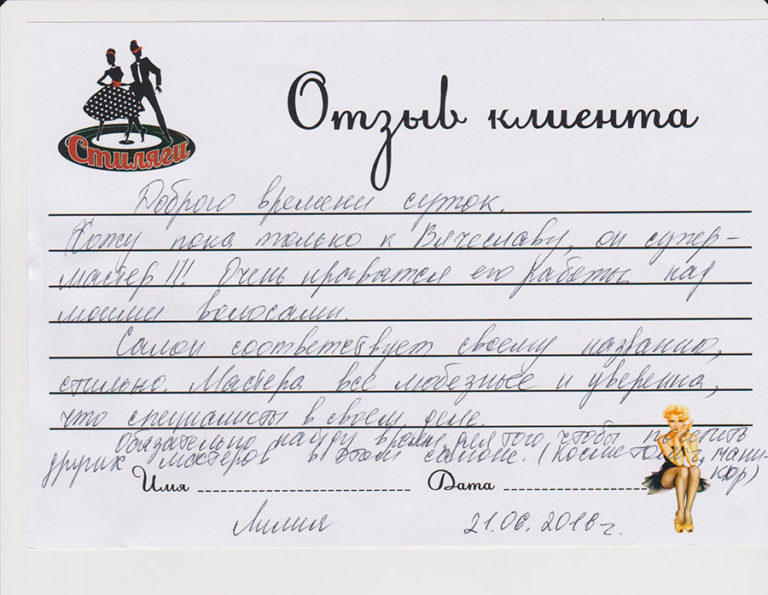 Стиляги
Отзыв клиента
Доброго времени суток.
Хожу пока только к Вячеславу, он супер-
мастер!!! Очень нравятся его работы над
моими волосами.
Салон соответствует своему названию,
стильно. Мастера все любезные и уверенна,
что специалисты в своем деле.
Обязательно найду время для того, чтобы посетить
других мастеров в этом салоне. (Косметолог, мани-
кюр)
Имя Дата
Лилия 21.06.2016г.